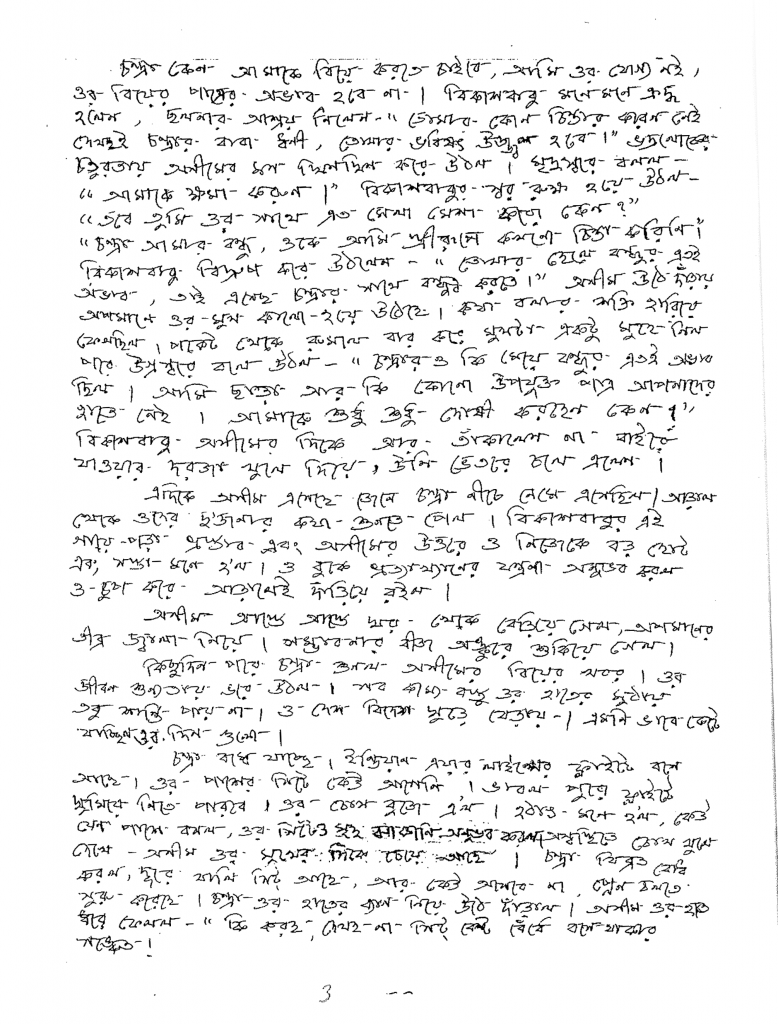 চন্দ্রা কেন আমাকে বিয়ে করতে চাইবে, আমি ওর যোগ্য নই,
ওর বিয়ের পাত্রের অভাব হবে না। বিকাশবাবু মনে মনে ক্রুদ্ধ
হলেন, ছলনার আশ্রয় নিলেন - "তোমার কোন চিন্তার কারন নেই
দেখছই চন্দ্রার বাবা ধনী, তোমার ভবিষৎ উজ্জ্বল হবে।" ভদ্রলোকের
চতুরতায় অসীমের মন ঘিনঘিন করে উঠল। মৃদুস্বরে বলল -
"আমাকে ক্ষমা করুন।" বিকাশবাবুর স্বর রুক্ষ হয়ে উঠল -
"তবে তুমি ওর সাথে এত মেলা মেশা করো কেন?"
"চন্দ্রা আমার বন্ধু, ওকে আমি স্ত্রীরূপে কখনো চিন্তা করিনি।"
বিকাশবাবু বিদ্রুপ করে উঠলেন - "তোমার ছেলে বন্ধুর এতই
অভাব, তাই এসেছ চন্দ্রার সাথে বন্ধুত্ব করতে।" অসীম উঠে দাঁড়ায়
অপমানে ওর মুখ কালো হয়ে উঠেছে। কথা বলার শক্তি হারিয়ে
ফেলছিল। পকেট থেকে রুমাল বার করে মুখটা একটু মুছে নিল
পরে উগ্রস্বরে বলে উঠল - "চন্দ্রারও কি মেয়ে বন্ধুর এতই অভাব
ছিল। আমি ছাড়া আর কি কোনো উপযুক্ত পাত্র আপনাদের
হাতে নেই। আমাকে শুধু শুধু দোষী করছেন কেন?"
বিকাশবাবু অসীমের দিকে আর তাঁকালেন না বাইরে
যাওয়ার দরজা খুলে দিয়ে, উনি ভেতরে চলে এলেন।
এদিকে অসীম এসেছে জেনে চন্দ্রা নীচে নেমে এসেছিল। আড়াল
থেকে ওদের দু'জনার কথা শুনতে পেল। বিকাশবাবুর এই
গায়ে পড়া প্রস্তাব এবং অসীমের উত্তরে ও নিজেকে বড় ছোট
এবং সস্তা মনে হ'ল। ও বুকে প্রত্যাখ্যানের যন্ত্রনা অনুভব করল
ও চুপ করে আড়ালেই দাঁড়িয়ে রইল।
অসীম আস্তে আস্তে ঘর থেকে বেড়িয়ে গেল, অপমানের
তীব্র জ্বালা নিয়ে। সম্ভাবনার বীজ অঙ্কুরে শুকিয়ে গেল।
কিছুদিন পরে চন্দ্রা শুনল অসীমের বিয়ের খবর। ওর
জীবন শুন্যতায় ভরে উঠল। সব কাম্য বস্তু ওর হাতের মুঠায়
তবু শান্তি পায় না। ও দেশ বিদেশ ঘুরে বেড়ায়। এমনি ভাবে কেটে
যাচ্ছিল ওর দিন গুলো।
চন্দ্রা বম্বে যাচ্ছে। ইন্ডিয়ান এয়ার লাইন্সের ফ্লাইটে বসে
আছে। ওর পাশের সিটে কেউ আসেনি। ভাবল পুরো ফ্লাইটে
ঘুমিয়ে নিতে পারবে। ওর চোখ বুজে এল। হঠাৎ মনে হ'ল, কেউ
যেন পাশে বসল, ওর সিটেও অনুভব করল। অস্বস্তিতে চোখ খুলে
দেখে - অসীম ওর মুখের দিকে চেয়ে আছে। চন্দ্রা বিব্রত বোধ
করল, দূরে খালি সিট আছে, আর কেউ আসবে না, প্লেন চলতে
সুরু করেছে। চন্দ্রা ওর হাতের ব্যাগ নিয়ে উঠে দাঁড়াল। অসীম ওর হাত
ধরে ফেলল - "কি করছ, দেখছ না সিট বেল্ট বেঁধে বসে থাকার
সঙ্কেত।
3 --